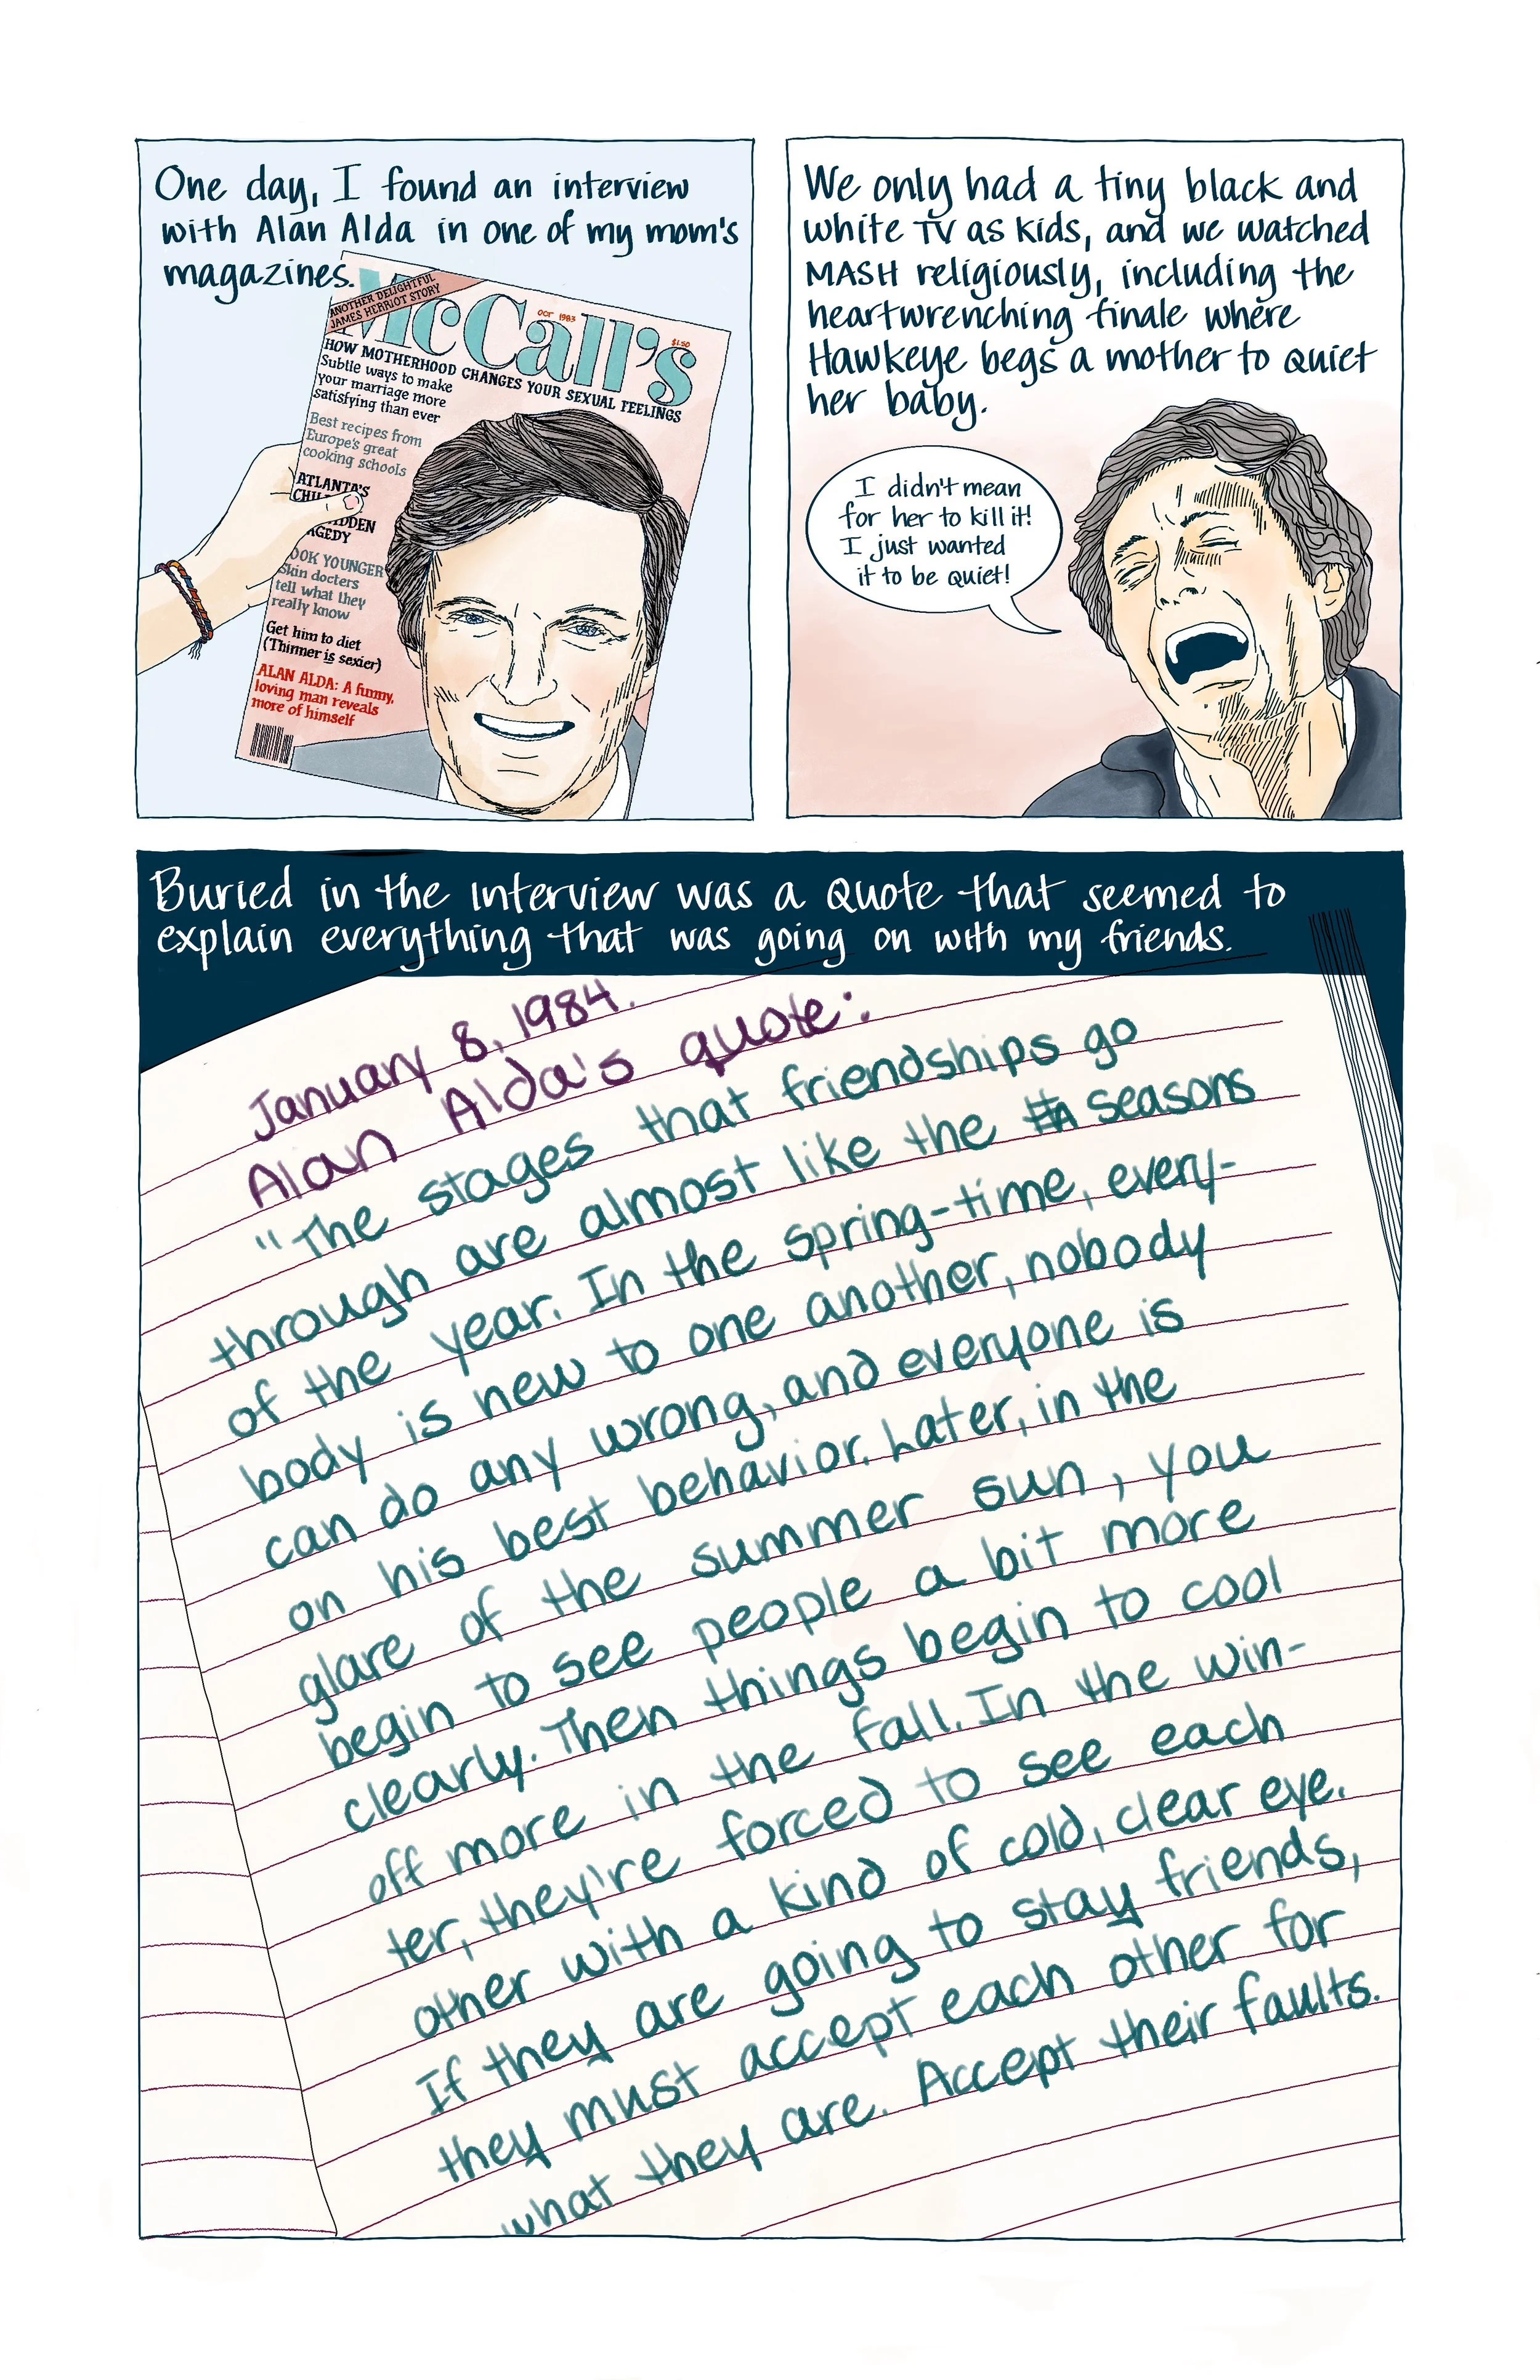 One day, I found an interview
with Alan Alda in one of my mom's
magazines.
ANOTHER DELIGHTFUL
JAMES HERRIOT STORY
McCall's
OCT 1983
$1.50
HOW MOTHERHOOD CHANGES YOUR SEXUAL FEELINGS
Subtle ways to make
your marriage more
satisfying than ever
Best recipes from
Europe's great
cooking schools
ATLANTA'S
CHIL
IDDEN
AGEDY
OOK YOUNGER
Skin docters
tell what they
really know
Get him to diet
(Thinner is sexier)
ALAN ALDA: A funny,
loving man reveals
more of himself
We only had a tiny black and
white TV as kids, and we watched
MASH religiously, including the
heartwrenching finale where
Hawkeye begs a mother to quiet
her baby.
I didn't mean
for her to kill it!
I just wanted
it to be quiet!
Buried in the interview was a quote that seemed to
explain everything that was going on with my friends.
January 8, 1984.
Alan Alda's quote:
"The stages that friendships go
through are almost like the seasons
of the year. In the spring-time, every-
body is new to one another, nobody
can do any wrong, and everyone is
on his best behavior. Later, in the
glare of the summer sun, you
begin to see people a bit more
clearly. Then things begin to cool
off more in the fall. In the win-
ter, they're forced to see each
other with a kind of cold, clear eye.
If they are going to stay friends,
they must accept each other for
what they are. Accept their faults.